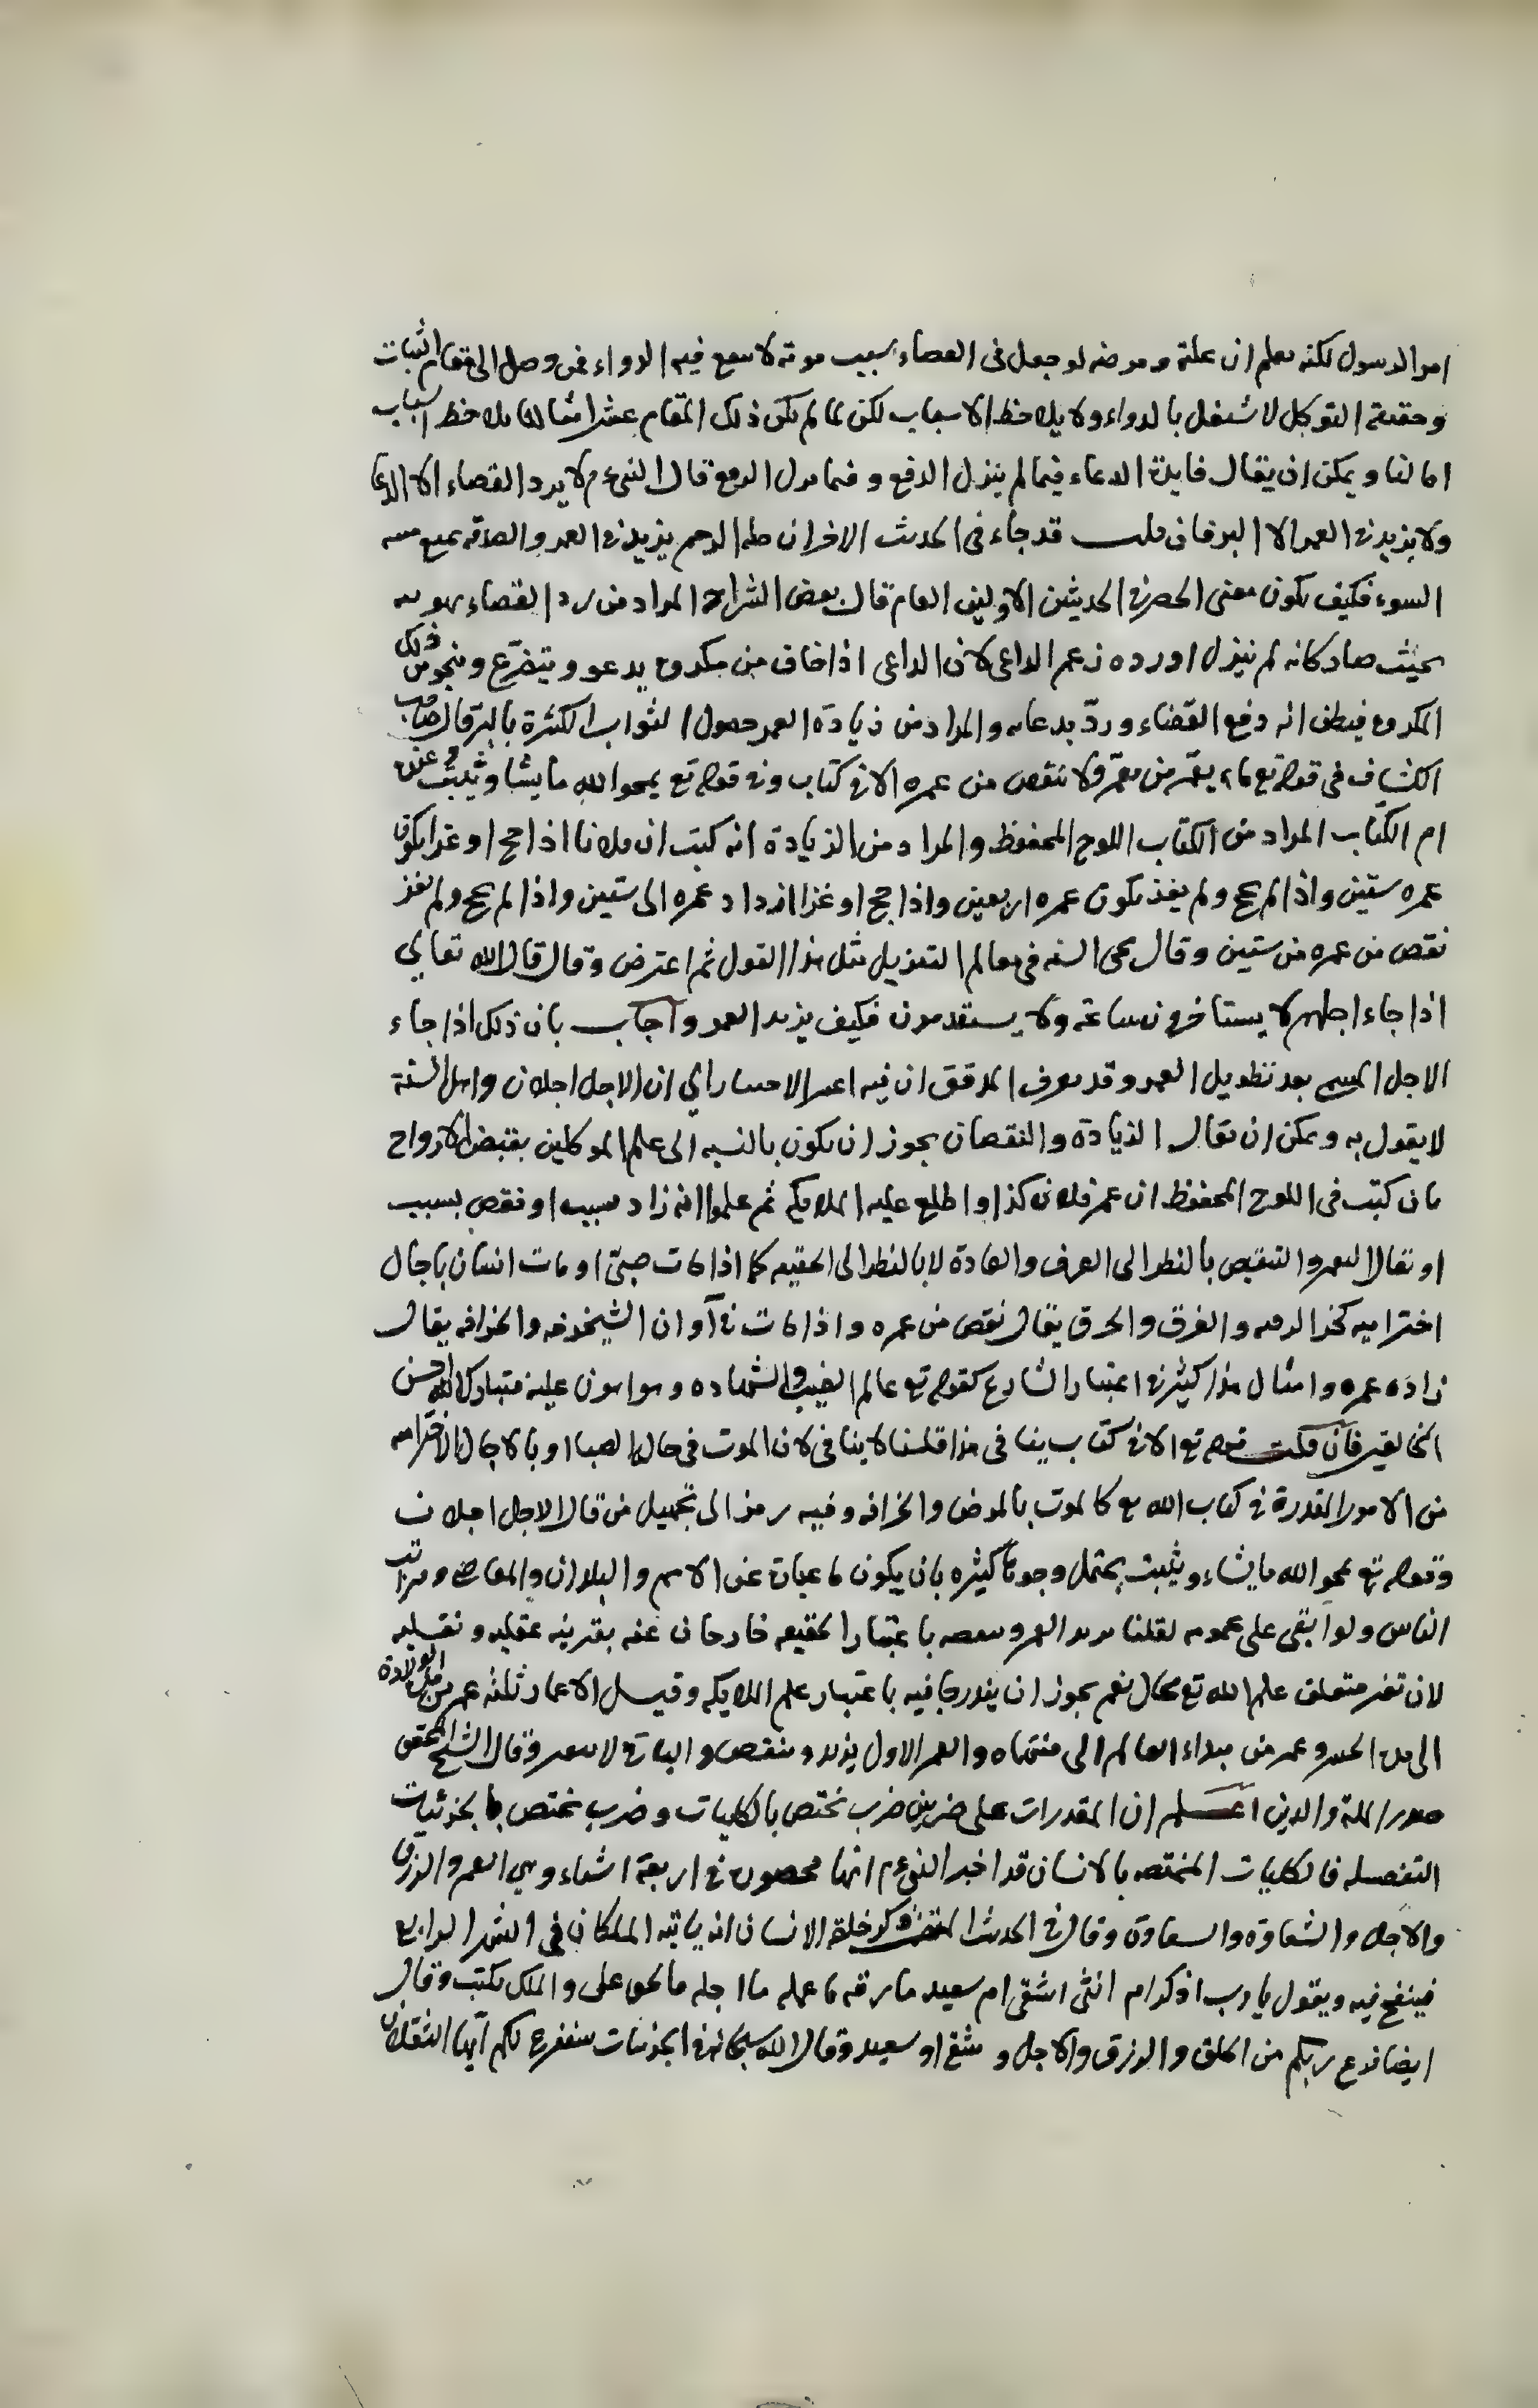 امر الرسول لكنه يعلم ان علته ومرضه لو جعل فى القضاء سبب موته لا ينفع فيه الدواء فمن وصل الى مقام اثبات
وحقيقة التوكل لا يشتغل بالدواء ولا يلاحظ الاسباب لكن لما لم يكن ذلك المقام عند امثالنا يلاحظ اسباب
امالنا ويمكن ان يقال فايدة الدعاء فيما لم ينزل الدفع وفيما نزل الرفع قال النبى ع م لا يرد القضاء الا الدعا
ولا يزيد فى العمر الا البر فان قلت قد جاء فى الحديث الاخر ان صلة الرحم يزيد فى العمر والصدقة تمنع ميتة
السوء فكيف يكون معنى الحصر فى الحديثين الاولين العام قال بعض الشراح المراد من رد القضاء تهوينه
بحيث صار كانه لم ينزل او رده زعم الداعى لان الداعى اذا خاف من مكروه يدعو ويتضرع وينجو من ذلك
المكروه فيظن انه دفع القضاء ورد بدعائه والمراد من زيادة العمر حصول الثواب الكثرة بالبر قال صاحب
الكشاف فى قوله تع ما يعمر من معمر ولا ينقص من عمره الا فى كتاب وفى قوله تع يمحوا الله ما يشا ويثبت وعنده
ام الكتاب المراد من الكتاب اللوح المحفوظ والمراد من الزيادة انه كتب ان فلانا اذا حج او غزا يكون
عمره ستين واذا لم يحج ولم يغز يكون عمره اربعين واذا حج او غزا ازداد عمره الى ستين واذا لم يحج ولم يغز
نقص من عمره من ستين وقال محى السنه فى معالم التنزيل مثل هذا القول ثم اعترض وقال قال الله تعالي
اذا جاء اجلهم لا يستاخرون ساعة ولا يستقدمون فكيف يزيد العمر واجاب بان ذلك اذا جاء
الاجل المسمى بعد تطويل العمر وقد يعرف المدقق ان فيه اى ان الاجل اجلان واهل السنة
لا يقول به ويمكن ان يقال الزيادة والنقصان يجوز ان يكون بالنسبه الى علم الموكلين بقبض الارواح
بان كتب فى اللوح المحفوظ ان عمر فلان كذا واطلع عليه الملايكه ثم علموا انه زاد بسبب او نقص بسبب
او يقال التعمير والتنقيص بالنظر الى العرف والعادة لا بالنظر الى الحقيقه كما اذا مات صبى او مات انسان باجال
اخترامية كخذ الرقبه والغرق والحرق يقال نقص من عمره واذا مات فى آوان الشيخوخه والخرافه يقال
زاده عمره وامثال هذا كثير فى اعتبار الشارع كقوله تع عالم الغيب والشهاده وهو اهون عليه فتبارك الله احسن
الخالقين فان قلت قوله تع الا فى كتاب ينافى هذا قلنا لا ينافى لان الموت فى حال الصبا او بالاجال الاخترامية
من الامور المقدرة فى كتاب الله تع كالموت بالمرض والخرافه وفيه رمز الى تجهيل من قال الاجل اجلان
وقوله تع يمحو الله ما يشاء ويثبت يحتمل وجوها كثيره بان يكون ما عبارة عن الاسم والبلدان والمعاصى ومراتب
الناس ولو ابقى على عمومه لقلنا يزيد العمر وينقصه باعتبار الحقيقه خارجان عنه بقرينه عقليه ونقليه
لان تغير متعلق علم الله تع محال نعم يجوز ان يندرجا فيه باعتبار علم الملايكه وقيل الاعمار ثلثه عمر من الولادة
الى وعمر من مبداء العالم الى منتهاه والعمر الاول يزيد وينقص والباقى لا يتغير وقال الشيخ المحقق
صدر الملة والدين اعلم ان المقدرات على ضربين ضرب تختص بالكليات وضرب تختص بالجزئيات
التفصيلية فالكليات المختصه بالانسان قد اخبر النبى ع م انها محصورة فى اربعة اشياء وهى العمر والرزق
والاجل والشقاوة والسعاوة وقال فى الحديث خلقة الانسان انه ياتيه الملكان فى الشهر الرابع
فينفخ فيه ويقول يا رب اذكر ام انثى اشقى ام سعيد ما رزقه ما عمله ما اجله فالحق يملى والملك يكتب وقال
ايضا فرغ ربكم من الخلق والرزق والاجل وشقى او سعيد وقال الله سبحانه فى الجزئيات سنفرغ لكم ايها الثقلان